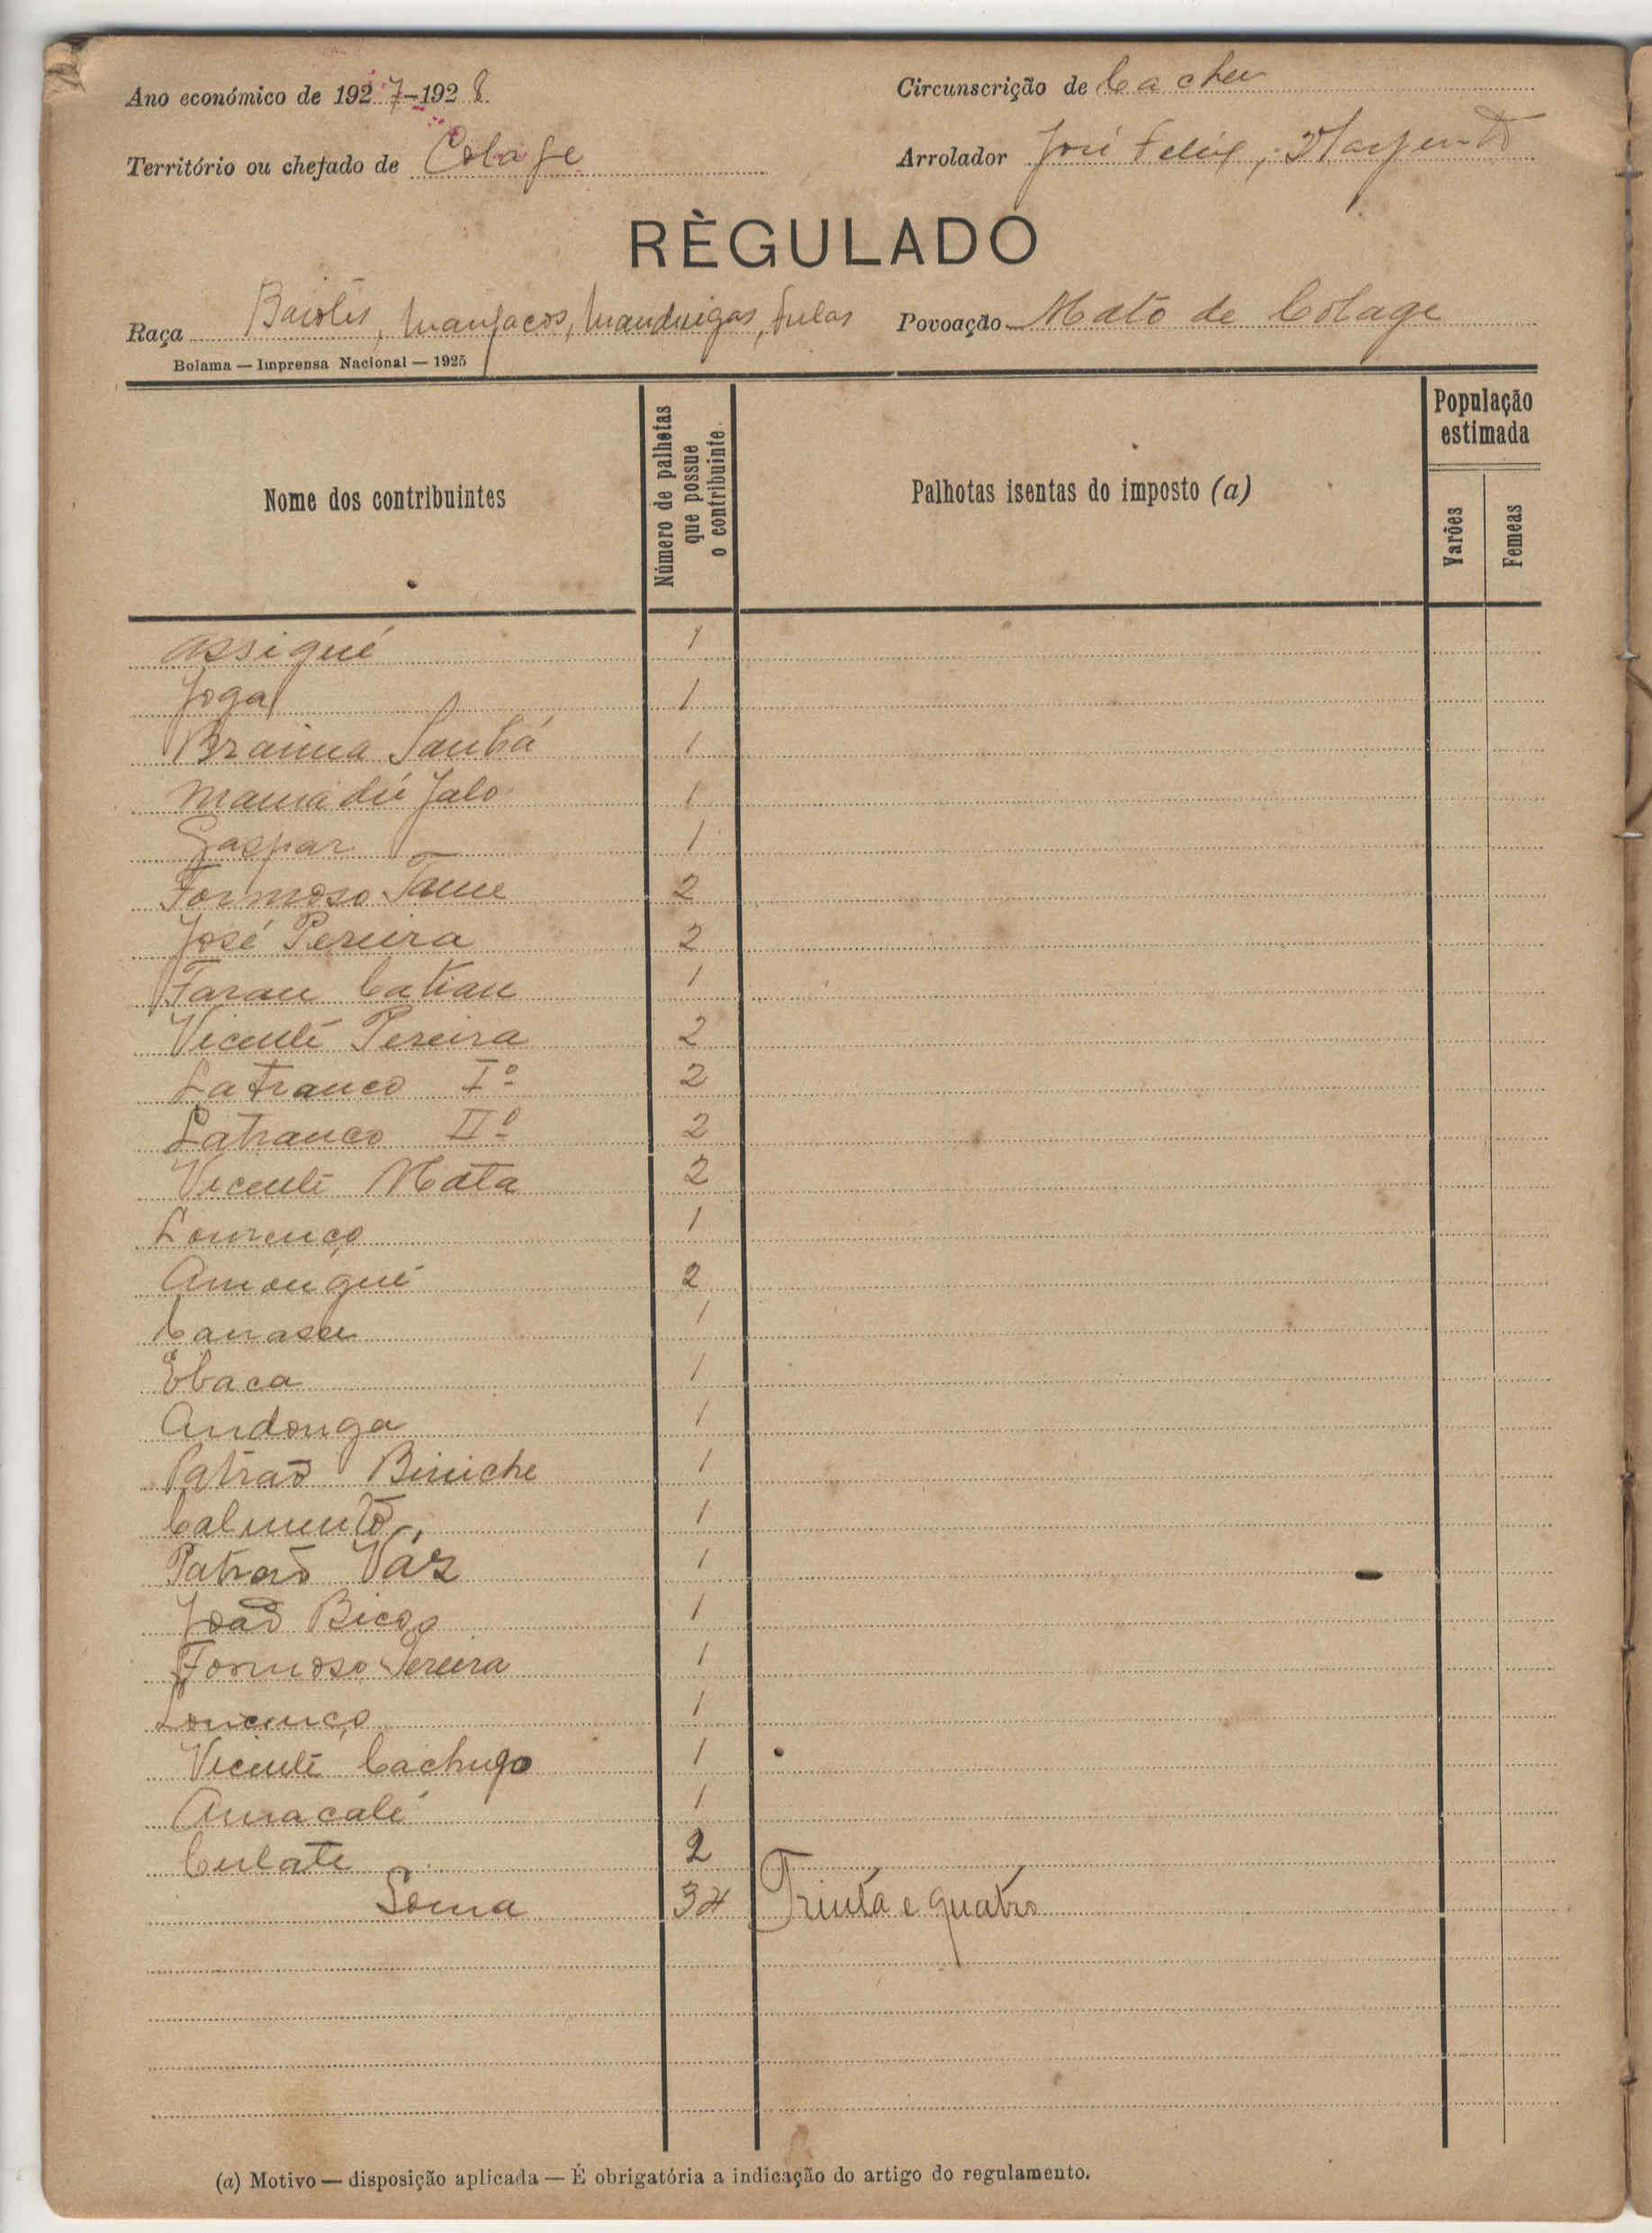 Ano económico de 1927-1928. Circunscrição de Cacheu
Território ou chefado de Colage Arrolador José Felix,
RÈGULADO
Raça Baiotes, Manjacos, Mandingas, Fulas Povoação Mato de Colage
Bolama — Imprensa Nacional — 1925
Nome dos contribuintes
Número de palhotas que possue o contribuinte.
Palhotas isentas do imposto (a)
População estimada
Varões
Femeas
Assiqué 1
Joga 1
Braima Sanhá 1
Mamadú Jalo 1
Gaspar 1
Formoso Tame 2
José Pereira 2
Faran Catian 1
Vicente Pereira 2
Lafranco Iº 2
Lafranco IIº 2
Vicente Mata 2
Lourenço 1
Amongué 2
Canassu 1
Ebaca 1
Andonga 1
Patrão Biniche 1
Calmentõ 1
Patrão Váz 1
João Bicos 1
Formoso Pereira 1
Lourenço 1
Vicente Cachugo 1
Amacalé 1
Culate 2
Soma 34 Trinta e quatro
(a) Motivo — disposição aplicada — É obrigatória a indicação do artigo do regulamento.